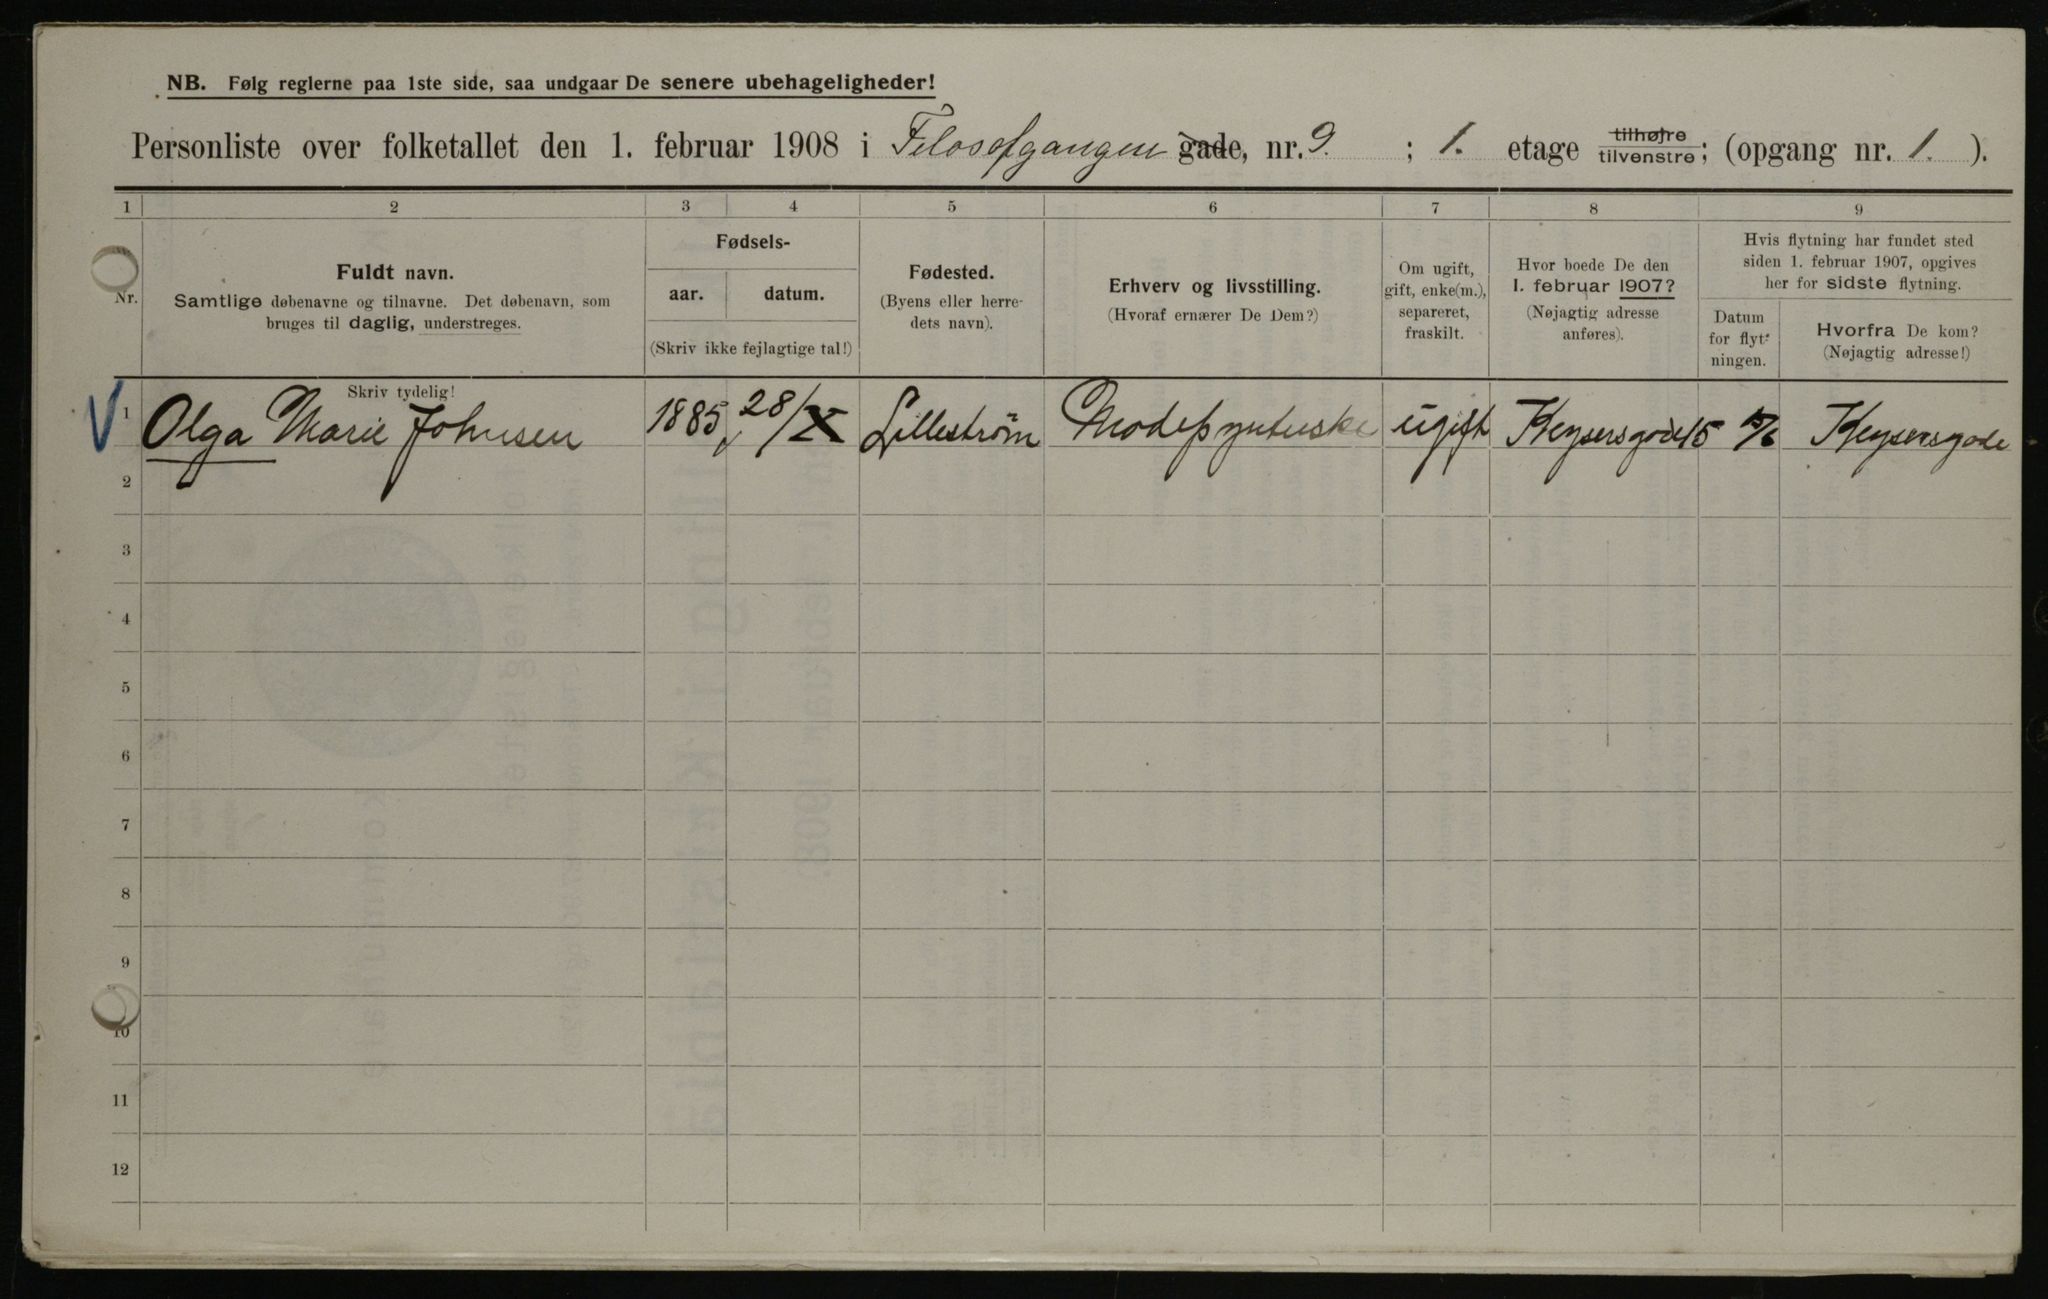 NB. Følg reglerne paa 1ste side, saa undgaar De senere ubehageligheder!
Personliste over folketallet den 1. februar 1908 i Filosofgangen gade, nr. 9. ; 1. etage tilhøjre tilvenstre; (opgang nr. 1. ).
1 2 3 4 5 6 7 8 9
Nr.
Fuldt navn.
Samtlige døbenavne og tilnavne. Det døbenavn, som
bruges til daglig, understreges.
Skriv tydelig!
Fødsels-
aar. datum.
(Skriv ikke fejlagtige tal!)
Fødested.
(Byens eller herre-
dets navn).
Erhverv og livsstilling.
(Hvoraf ernærer De Dem?)
Om ugift,
gift, enke(m.),
separeret,
fraskilt.
Hvor boede De den
1. februar 1907?
(Nøjagtig adresse
anføres).
Hvis flytning har fundet sted
siden 1. februar 1907, opgives
her for sidste flytning.
Datum
for flyt-
ningen.
Hvorfra De kom?
(Nøjagtig adresse!)
1 Olga Marie Johnsen 1885 28/X Lillestrøm Modepyntuske ugift Keysersgade 15 Keysersgade
2
3
4
5
6
7
8
9
10
11
12